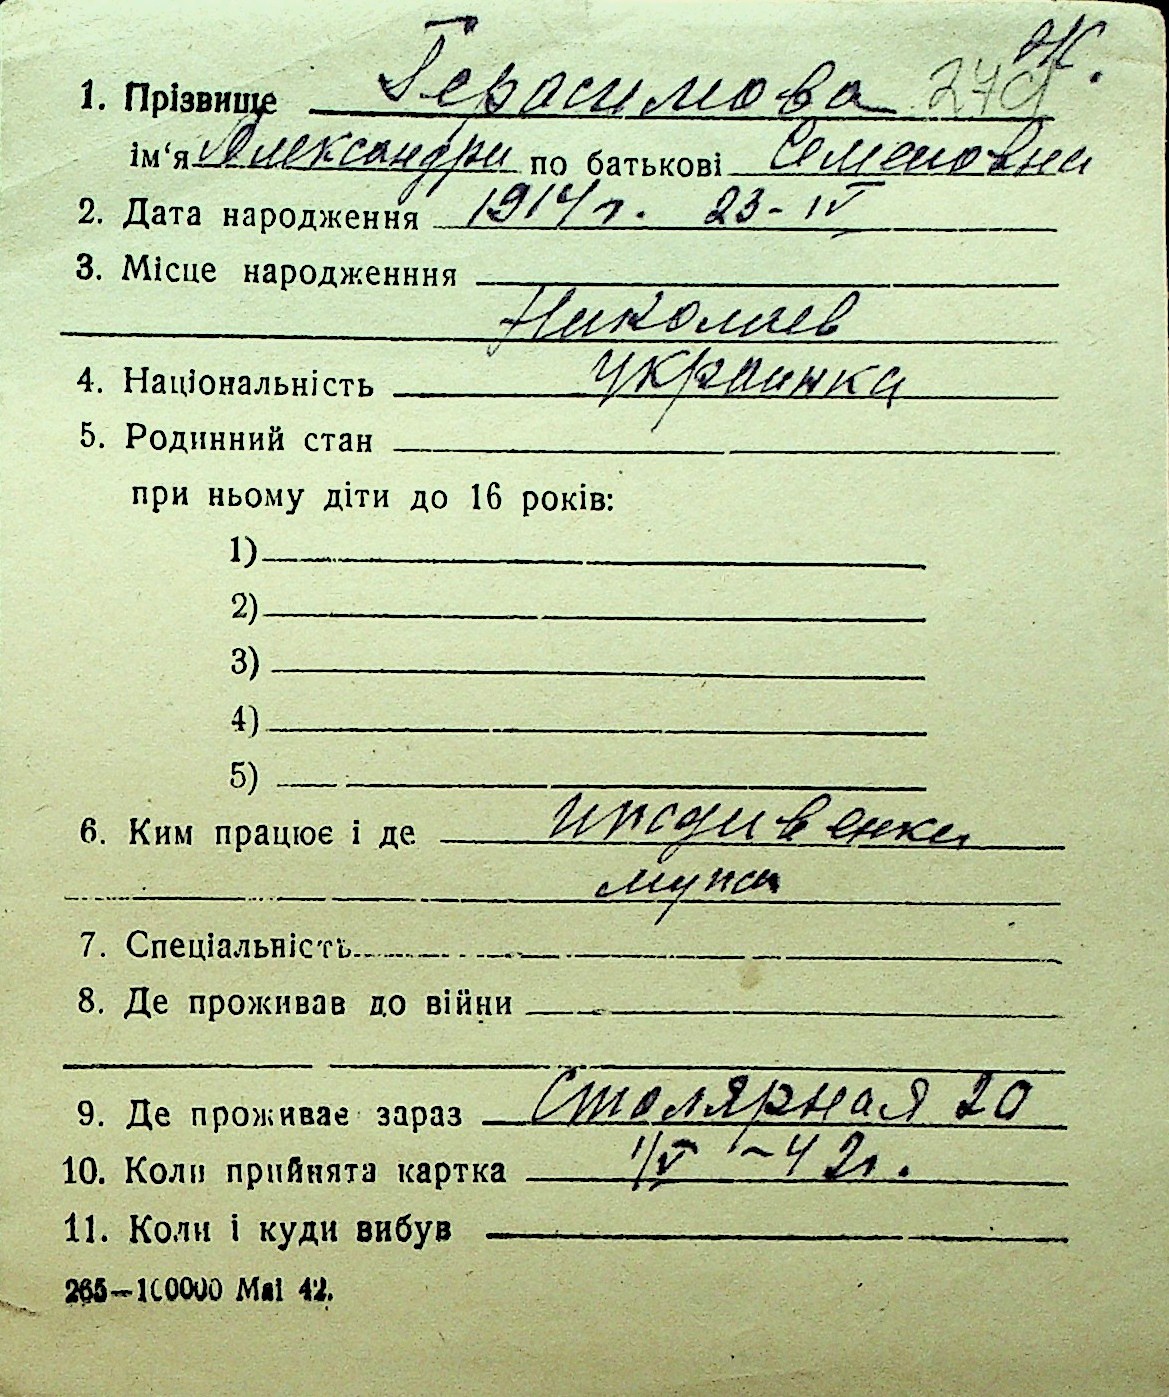 Ж.
1. Прізвище Герасимова 279
ім‘я Александра по батькові Семеновна
2. Дата народження 1914 г. 23-IV
3. Місце народженння
Николаев
4. Національність украинка
5. Родинний стан
при ньому діти до 16 років:
1)
2)
3)
4)
5)
6. Ким працює і де иждивенка
мужа
7. Спеціальність
8. Де проживав до війни
9. Де проживає зараз Столярная 20
10. Коли прийнята картка 1/V -42 г.
11. Коли і куди вибув
265—100000 Маі 42.